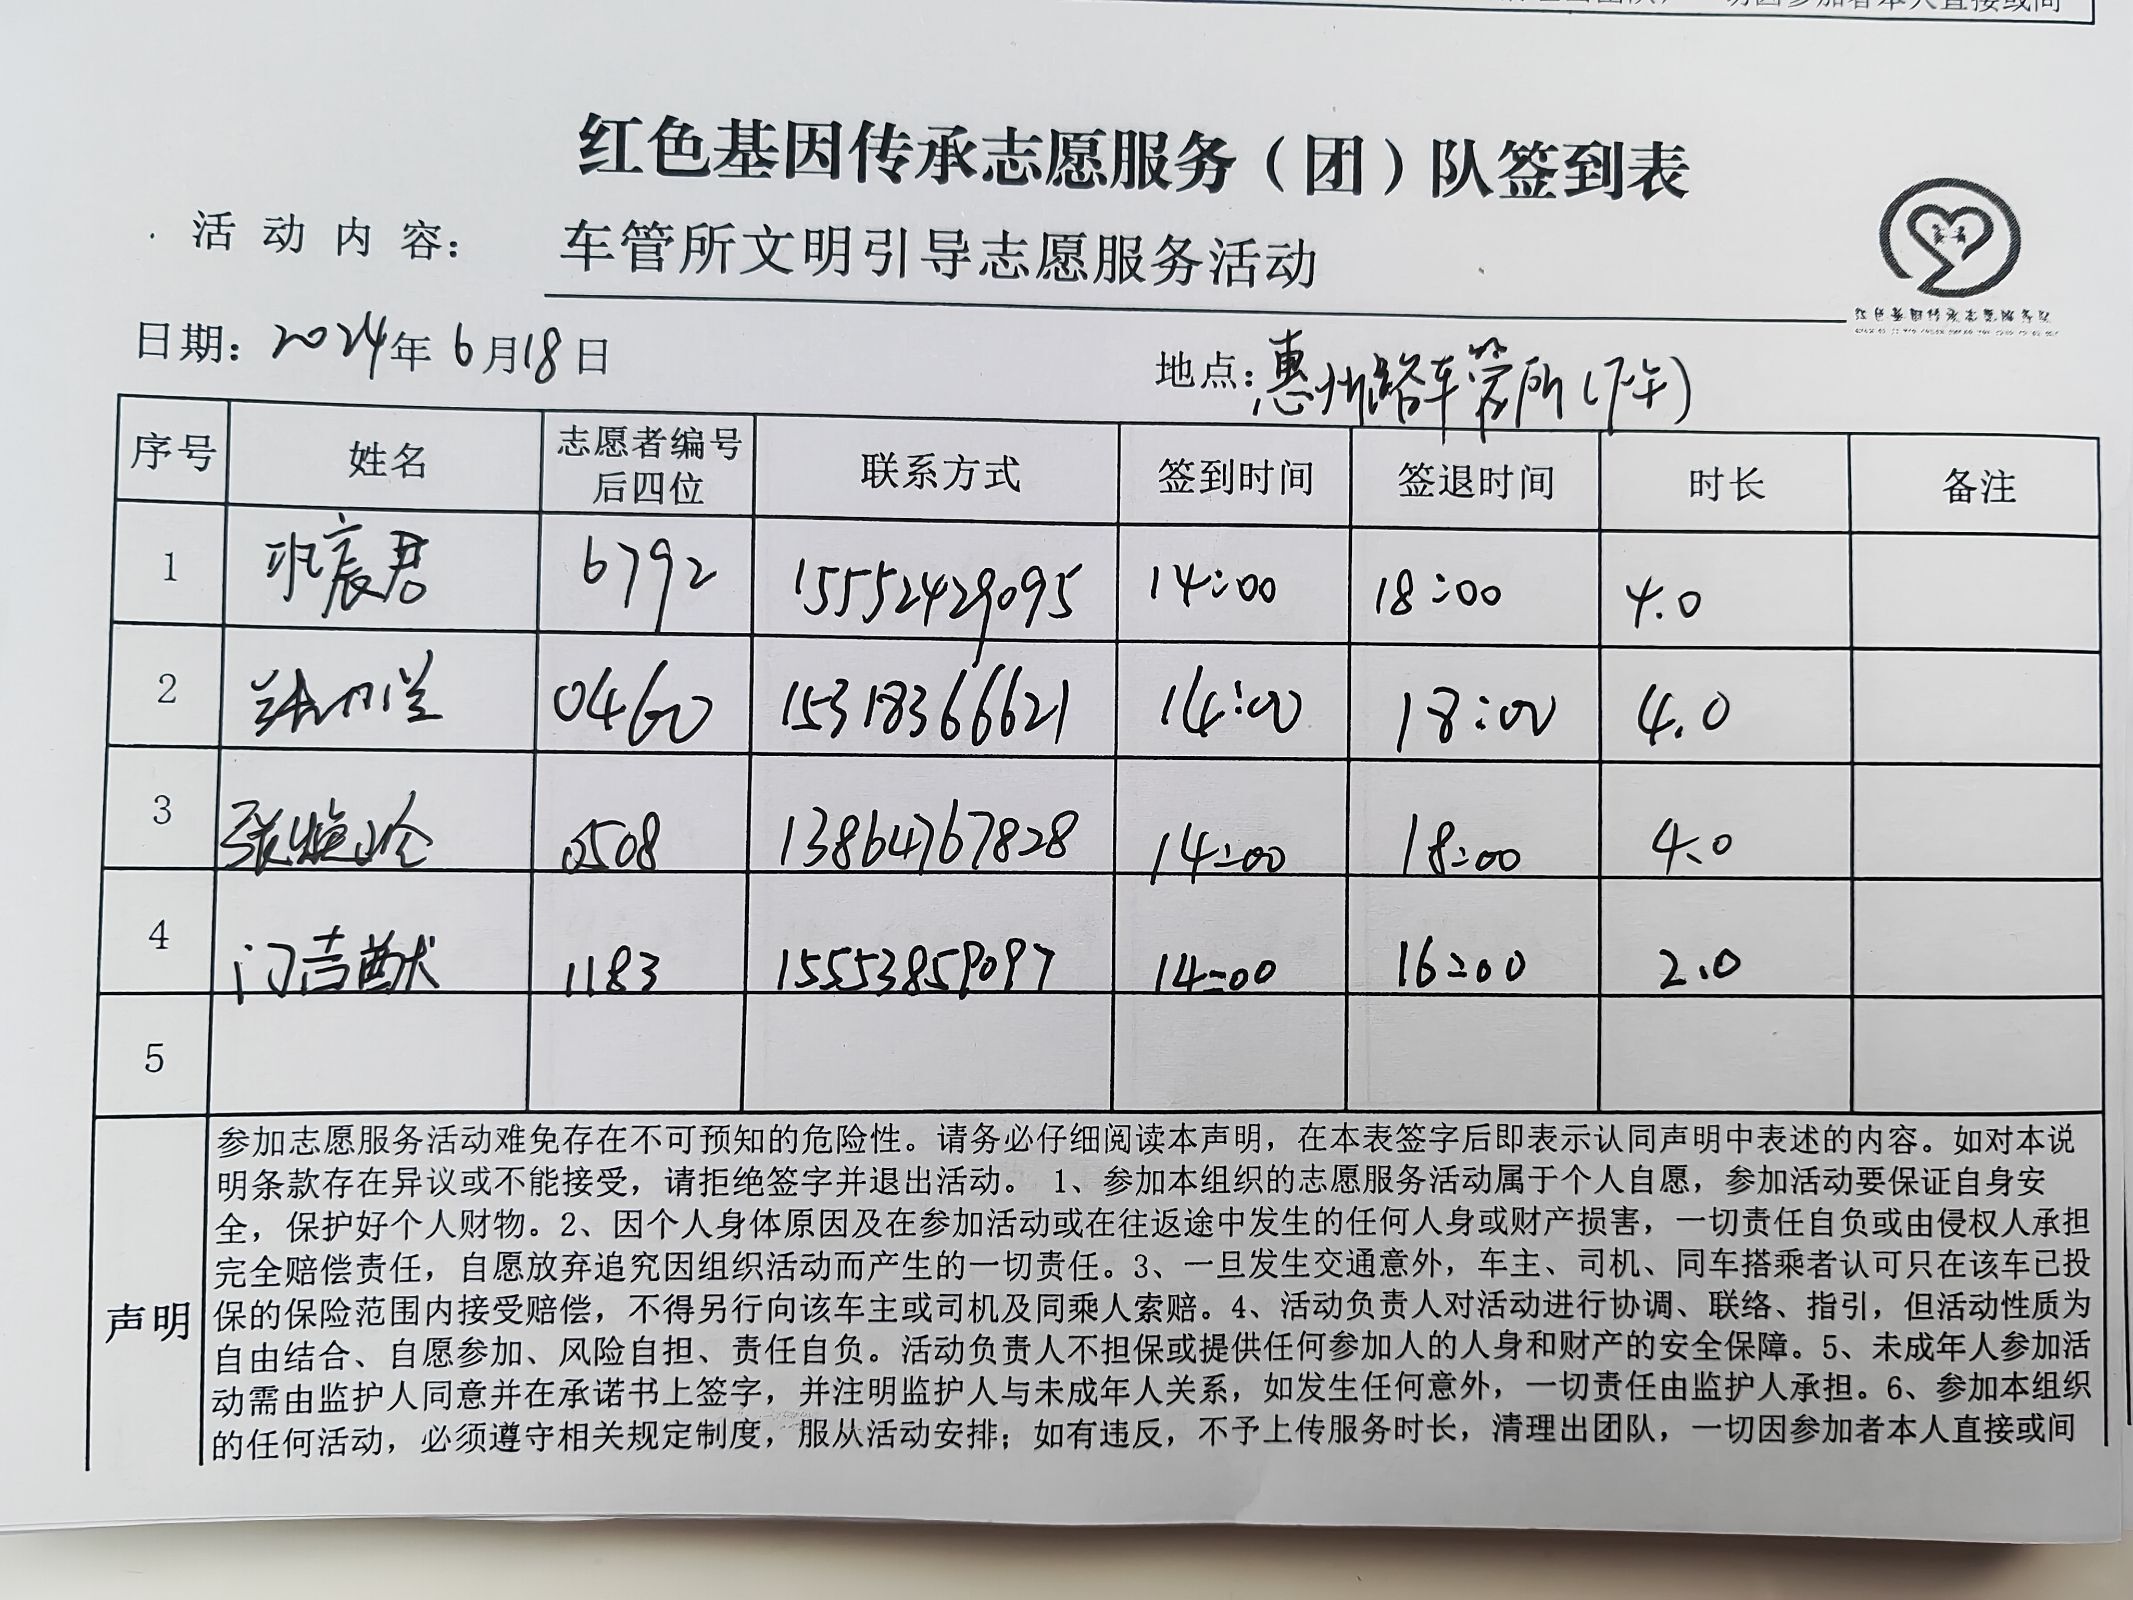 红色基因传承志愿服务（团）队签到表
活动内容： 车管所文明引导志愿服务活动
日期：2024年6月18日 地点：惠州路车管所（下午）
序号 姓名 志愿者编号后四位 联系方式 签到时间 签退时间 时长 备注
1 班宸君 6792 15552429095 14:00 18:00 4.0
2 0460 15318366621 14:00 18:00 4.0
3 张 玲 0508 13864767828 14:00 18:00 4.0
4 门吉猷 1183 15553859097 14:00 16:00 2.0
5
声明
参加志愿服务活动难免存在不可预知的危险性。请务必仔细阅读本声明，在本表签字后即表示认同声明中表述的内容。如对本说
明条款存在异议或不能接受，请拒绝签字并退出活动。 1、参加本组织的志愿服务活动属于个人自愿，参加活动要保证自身安
全，保护好个人财物。2、因个人身体原因及在参加活动或在往返途中发生的任何人身或财产损害，一切责任自负或由侵权人承担
完全赔偿责任，自愿放弃追究因组织活动而产生的一切责任。3、一旦发生交通意外，车主、司机、同车搭乘者认可只在该车已投
保的保险范围内接受赔偿，不得另行向该车主或司机及同乘人索赔。4、活动负责人对活动进行协调、联络、指引，但活动性质为
自由结合、自愿参加、风险自担、责任自负。活动负责人不担保或提供任何参加人的人身和财产的安全保障。5、未成年人参加活
动需由监护人同意并在承诺书上签字，并注明监护人与未成年人关系，如发生任何意外，一切责任由监护人承担。6、参加本组织
的任何活动，必须遵守相关规定制度，服从活动安排；如有违反，不予上传服务时长，清理出团队，一切因参加者本人直接或间